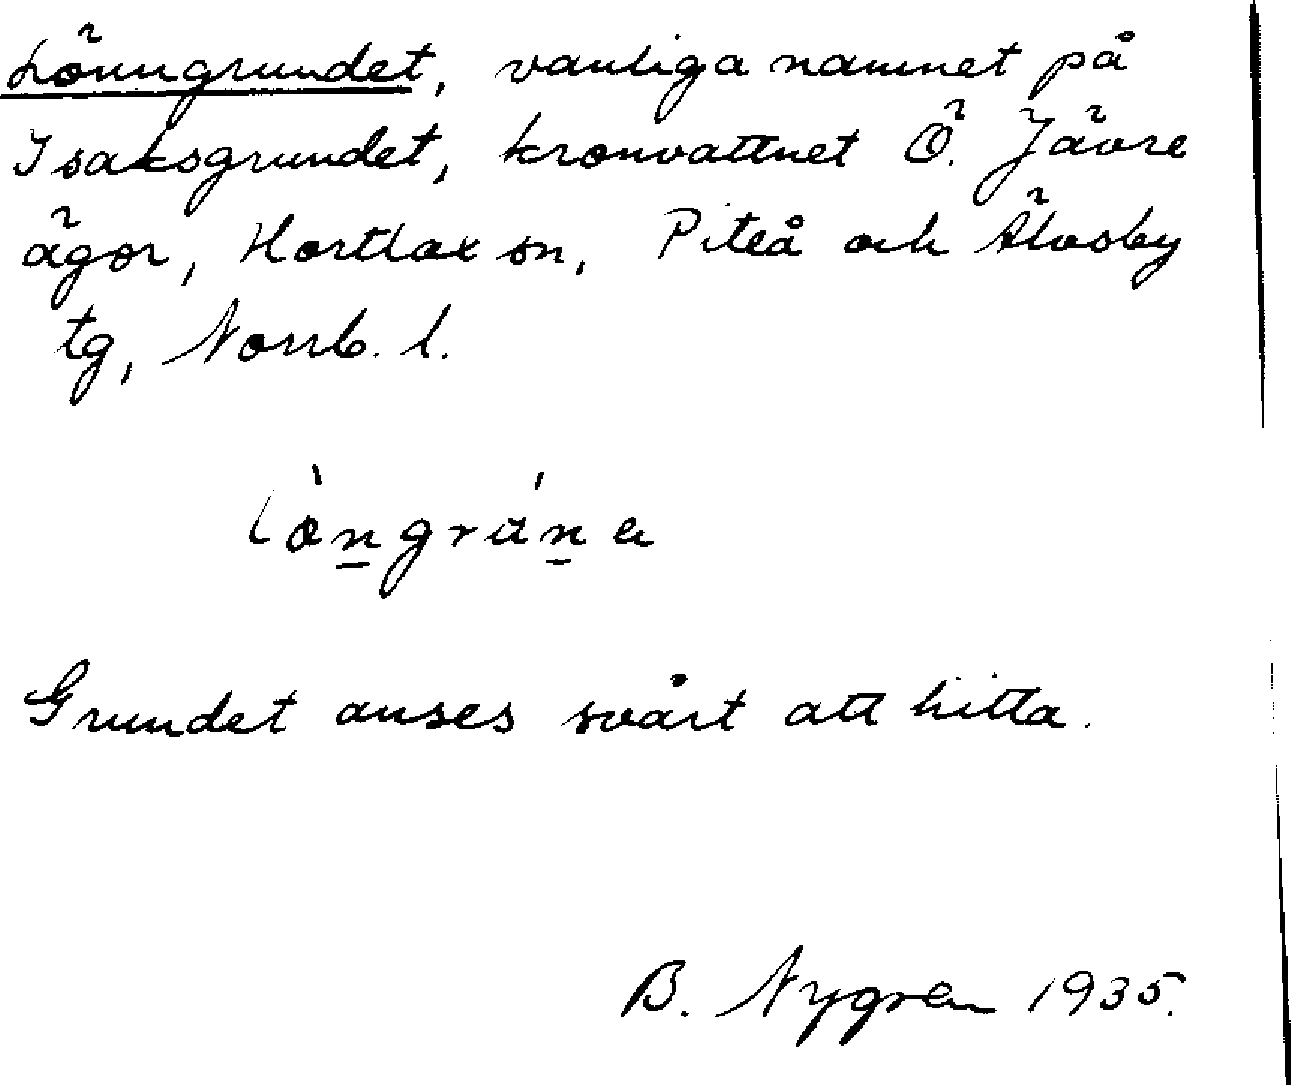 Lönngrundet, vanliga namnet på
Isaksgrundet, kronvattnet Ö. Jävre
ägor, Hortlax sn, Piteå och Älvsby
tg, Norrb. l.
Grundet anses svårt att hitta.
B. Nygren 1935.